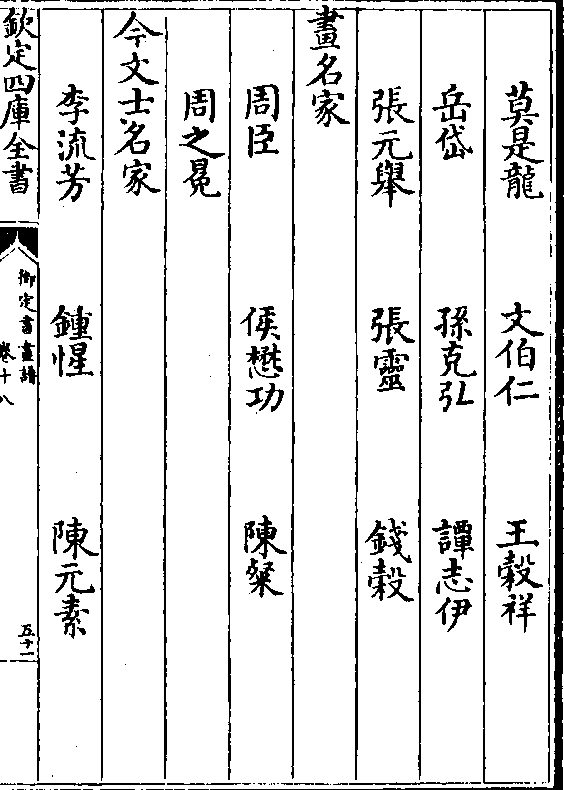 莫是龍　文伯仁　王穀祥
岳岱　孫克弘　譚志伊
張元舉　張靈　錢穀
畫名家
周臣　侯懋功　陳粲
周之冕
今文士名家
李流芳　鍾惺　陳元素
欽定四庫全書
御定書畫譜
卷十八
五十一